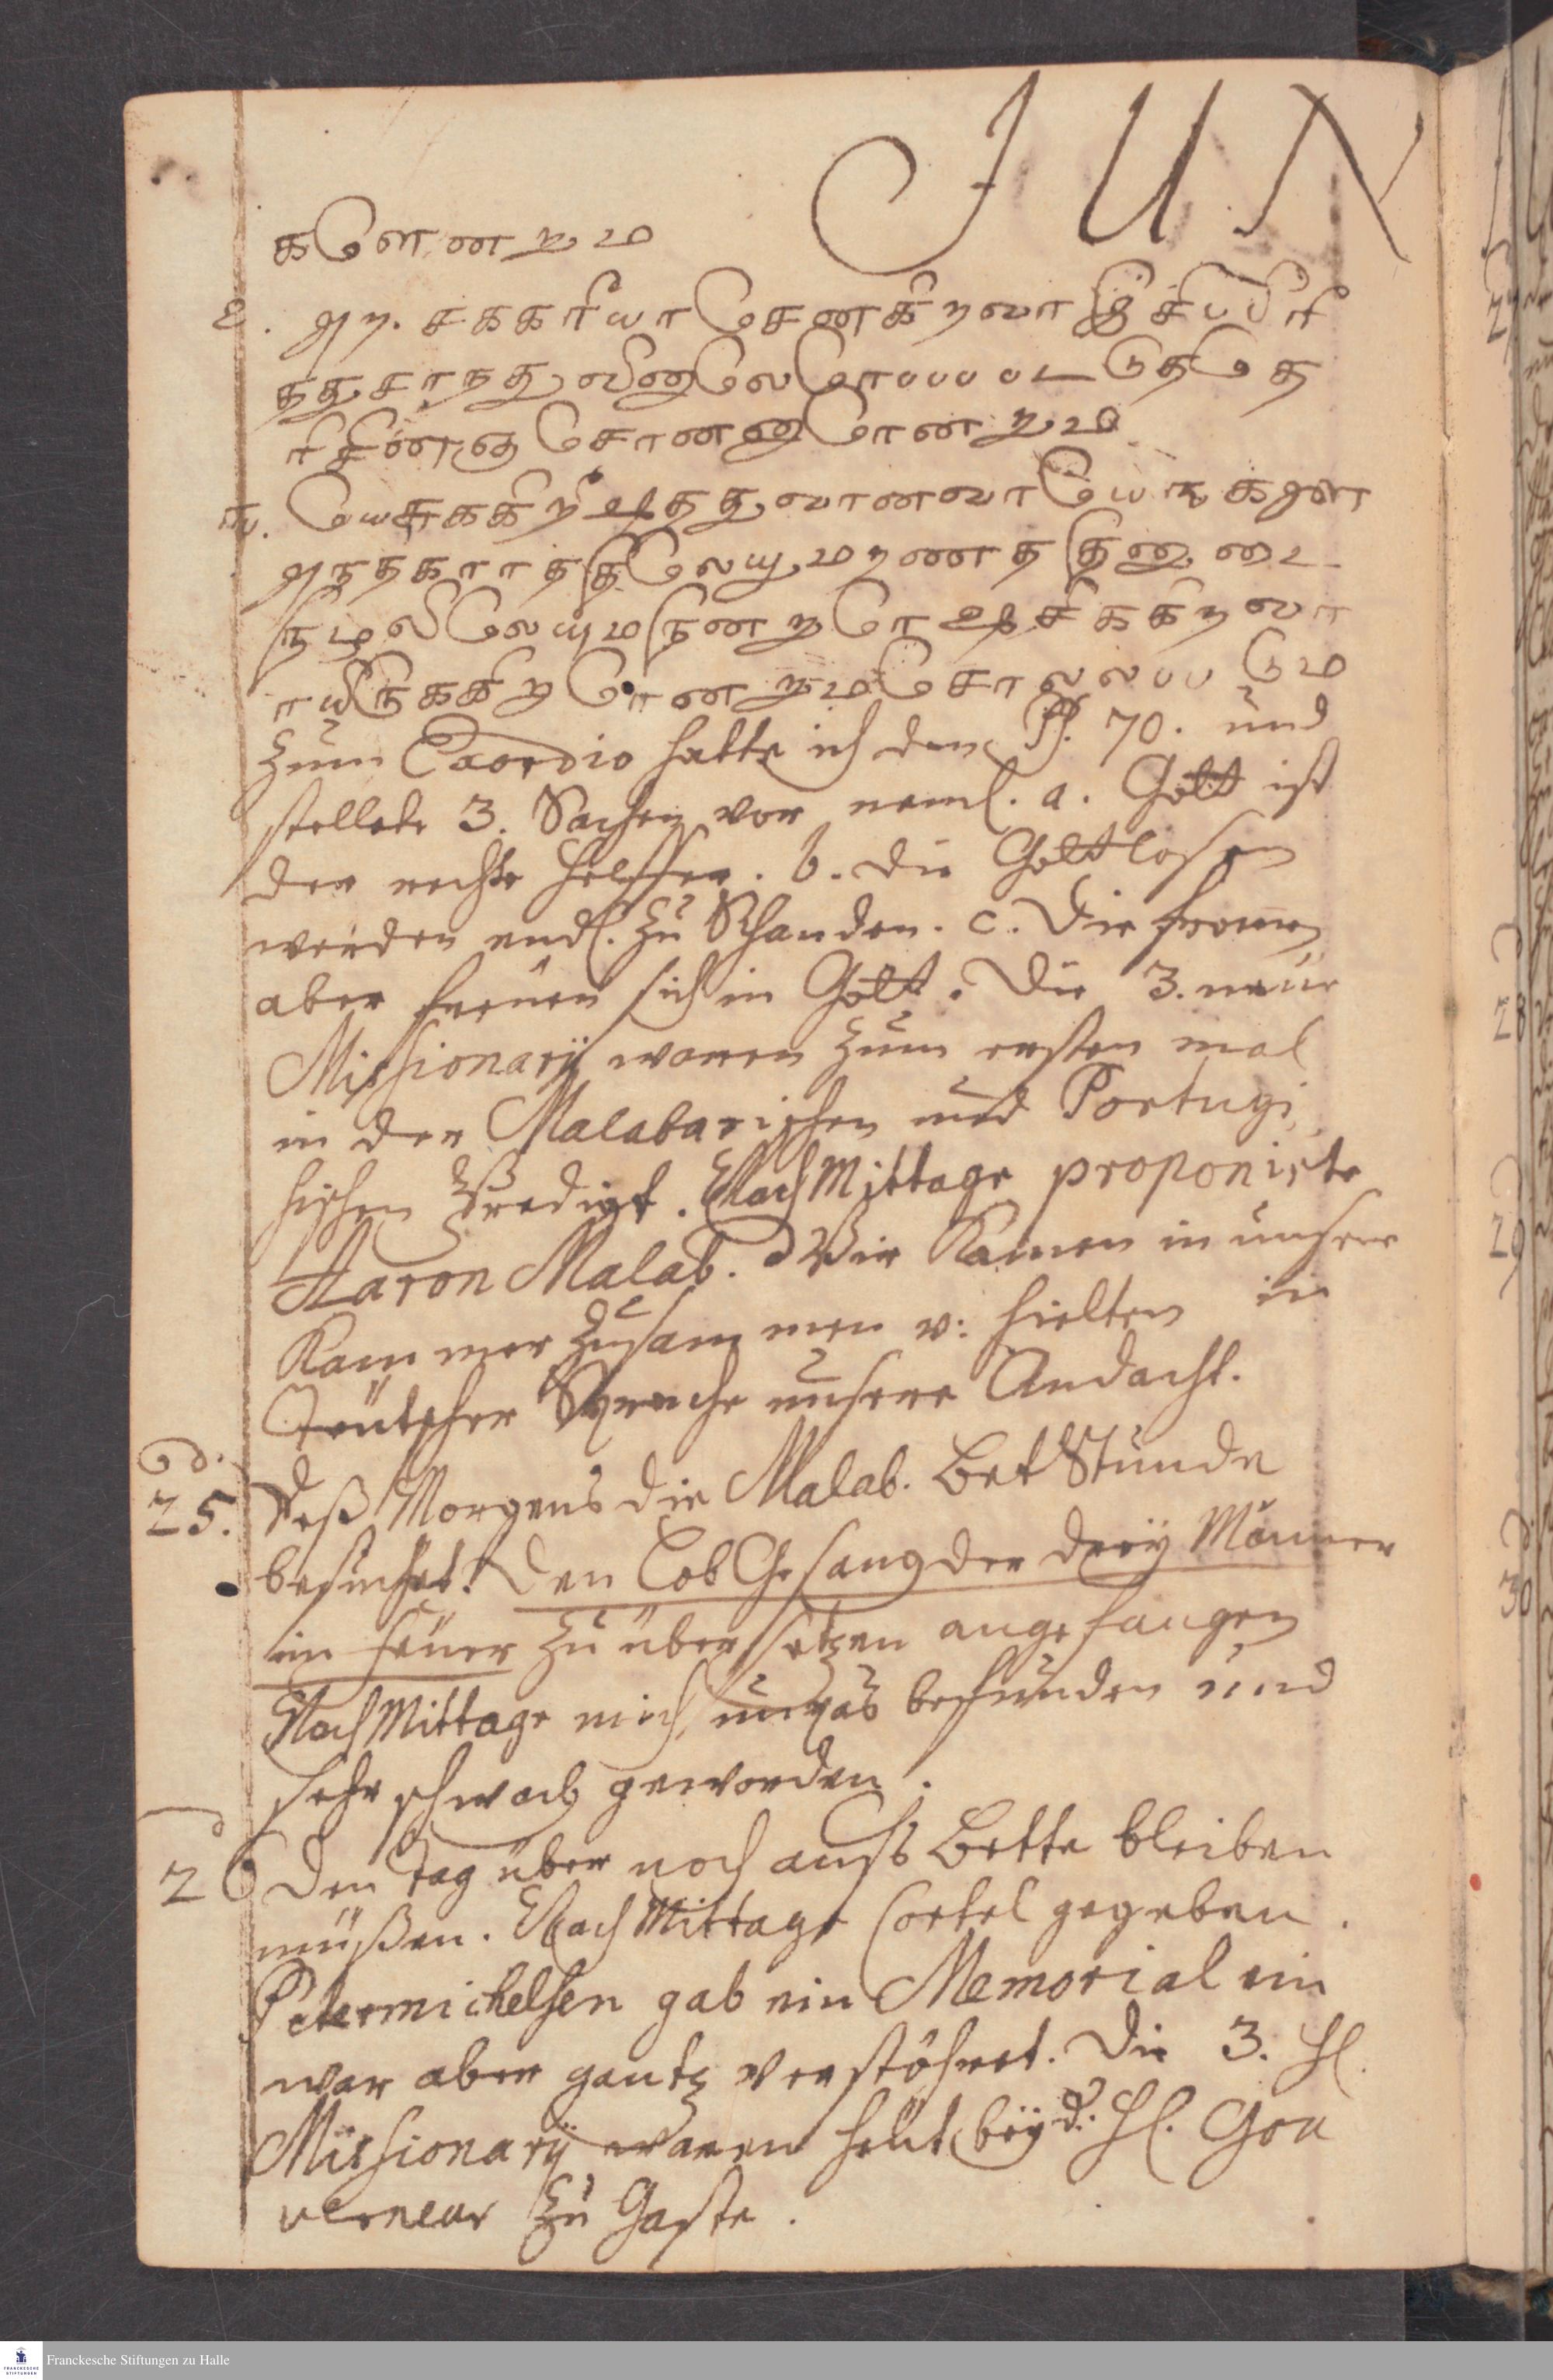 JUN
களென றும
௨. அந. சககரியா சேனகிறவா இசிபபிர
தது சாநது வினலே ளோபபபபட டுததே
ரசிணடிகு சொனனானோன றும
௩. யேசுககிறீஷதது வானவா யேஙகளா
அநதகாரததிலேயு மறணததினுடை
நிழலிலேயும நினறு ரேஷசிககிறவா
ராயிருககிறாரேன றும சொலலபபடும
Zum Exordio hatte ich den Ps. 70. und
stellete 3. Sachen vor neml. a. Gott ist
der rechte Helffer. b. die Gottlosen
werden endl. zu Schanden. c. Die fromen
aber freüen sich in Gott. Die 3. neüe
Missionarÿ waren zum ersten mal
in der Malabarischen und Portugi
sischen Predigt. NachMittage proponirte
Aaron Malab. Wir kamen in unserer
Kammer zusammen u: hielten in
Teütscher Sprache unsere Andacht.
25. Deß Morgens die Malab. BetStunde
besuchet. Den LobGesang der dreÿ Männer
im feüer zu übersetzen angefangen
NachMittage mich unpas befunden und
sehr schwach geworden.
26 Den Tag über noch aufs Bette bleiben
müßen. NachMittage Cortel gegeben.
Petermichelsen gab ein Memorial ein
war aber gantz verstöhret. Die 3. H.
Missionarÿ waren heüt beÿ d. H. Gou
verneur zu Gaste.
Franckesche Stiftungen zu Halle